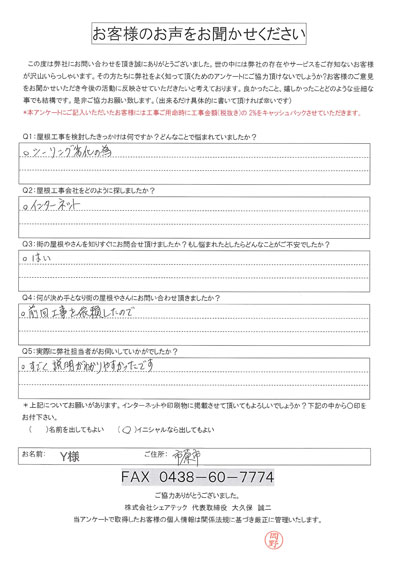 お客様のお声をお聞かせください
この度は弊社にお問い合わせを頂き誠にありがとうございました。世の中には弊社の存在やサービスをご存知ないお客様
が沢山いらっしゃいます。その方たちに弊社をよく知って頂くためのアンケートにご協力頂けないでしょうか?お客様のご意見
をお聞かせいただき今後の活動に反映させていただきたいと考えております。良かったこと、嬉しかったことどのような些細な
事でも結構です。是非ご協力お願い致します。(出来るだけ具体的に書いて頂ければ幸いです)
*本アンケートにご記入いただいたお客様には工事ご用命時に工事金額(税抜き)の2%をキャッシュバックさせていただきます。
Q1:屋根工事を検討したきっかけは何ですか?どんなことで悩まれていましたか?
○シーリング劣化の為
Q2:屋根工事会社をどのように探しましたか?
○インターネット
Q3:街の屋根やさんを知りすぐにお問合せ頂けましたか?もし悩まれたとしたらどんなことがご不安でしたか?
○はい
Q4:何が決め手となり街の屋根やさんにお問い合わせ頂きましたか?
○前回工事を依頼したので
Q5:実際に弊社担当者がお伺いしていかがでしたか?
○すごく説明がわかりやすかったです
*上記についてお願いがあります。インターネットや印刷物に掲載させて頂いてもよろしいでしょうか?下記の中から○印を
お付下さい。
( )名前を出してもよい (○)イニシャルなら出してもよい
お名前: Y様 ご住所: 市原市
FAX 0438-60-7774
ご協力ありがとうございました。
株式会社シェアテック 代表取締役 大久保 誠二
当アンケートで取得したお客様の個人情報は関係法規に基づき厳正に管理いたします。
岡野